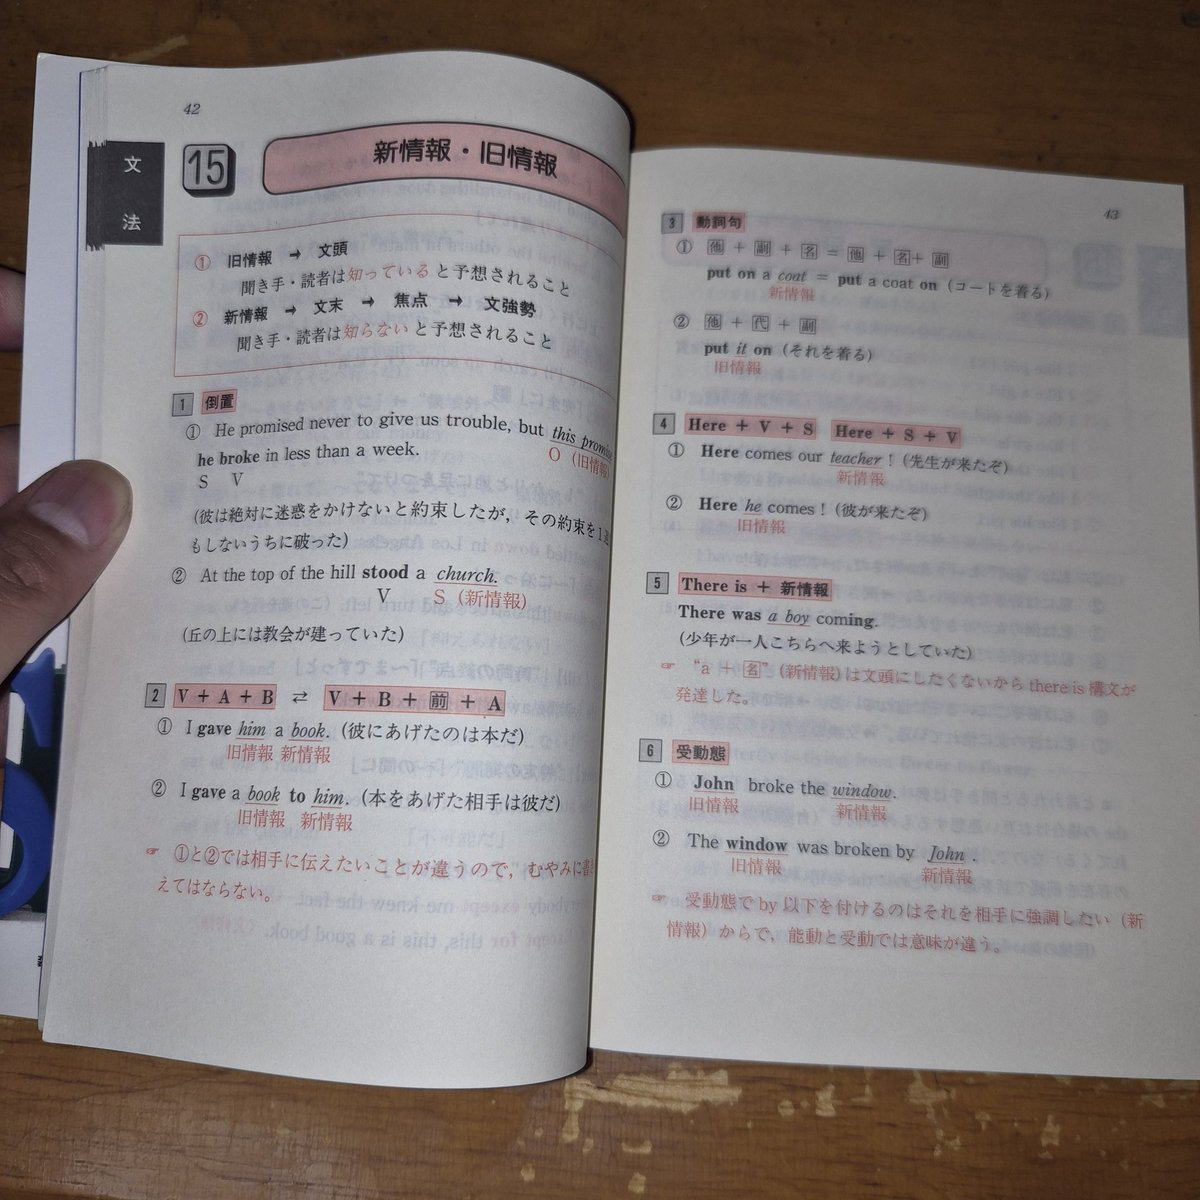 42
文法
15 新情報・旧情報
① 旧情報 → 文頭
聞き手・読者は知っていると予想されること
② 新情報 → 文末 → 焦点 → 文強勢
聞き手・読者は知らないと予想されること
1 倒置
① He promised never to give us trouble, but this promise
O (旧情報)
he broke in less than a week.
S V
(彼は絶対に迷惑をかけないと約束したが，その約束を1
もしないうちに破った)
② At the top of the hill stood a church.
V S (新情報)
(丘の上には教会が建っていた)
2 V + A + B ⇄ V + B + 前 + A
① I gave him a book. (彼にあげたのは本だ)
旧情報 新情報
② I gave a book to him. (本をあげた相手は彼だ)
旧情報 新情報
☞ ①と②では相手に伝えたいことが違うので，むやみに書き
えてはならない。
43
3 動詞句
① 他 + 副 + 名 = 他 + 名 + 副
put on a coat = put a coat on (コートを着る)
新情報
② 他 + 代 + 副
put it on (それを着る)
旧情報
4 Here + V + S Here + S + V
① Here comes our teacher! (先生が来たぞ)
新情報
② Here he comes! (彼が来たぞ)
旧情報
5 There is + 新情報
There was a boy coming.
(少年が一人こちらへ来ようとしていた)
☞ “a + 名” (新情報) は文頭にしたくないから there is 構文が
発達した。
6 受動態
① John broke the window.
旧情報 新情報
② The window was broken by John.
旧情報 新情報
☞ 受動態で by 以下を付けるのはそれを相手に強調したい (新
情報) からで，能動と受動では意味が違う。